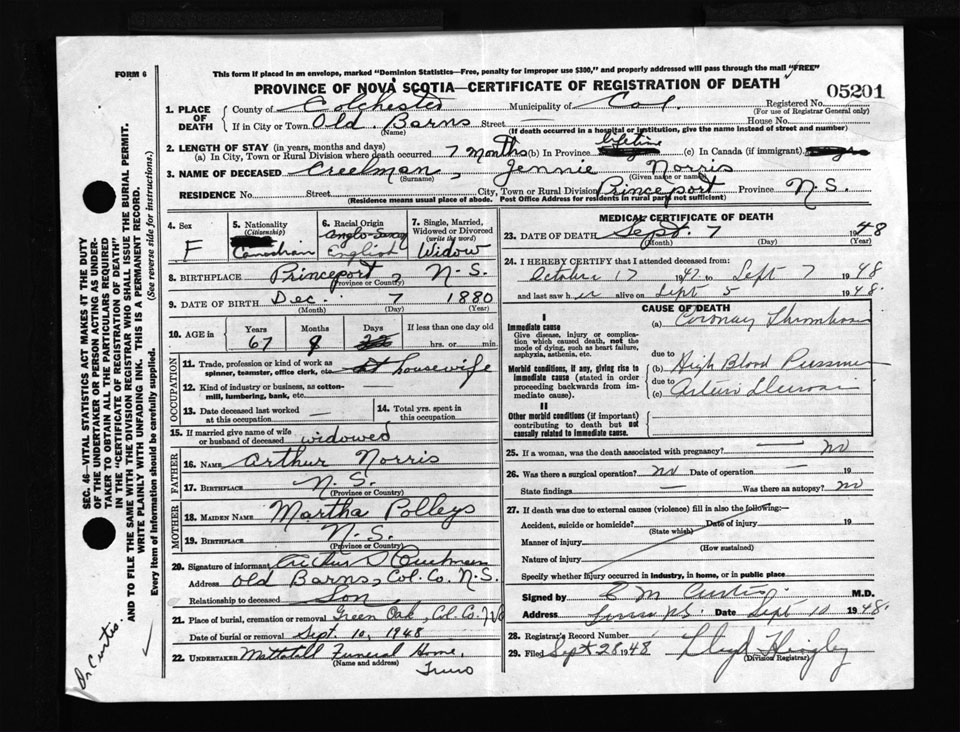 FORM 6
This form if placed in an envelope, marked "Dominion Statistics—Free, penalty for improper use $300," and properly addressed will pass through the mail "FREE"
PROVINCE OF NOVA SCOTIA—CERTIFICATE OF REGISTRATION OF DEATH
05201
1. PLACE OF DEATH
County of Colchester Municipality of Col. Registered No.
(For use of Registrar General only)
If in City or Town Old Barns Street — House No.
(Name) (If death occurred in a hospital or institution, give the name instead of street and number)
2. LENGTH OF STAY (in years, months and days)
(a) In City, Town or Rural Division where death occurred 7 Months (b) In Province lifetime (c) In Canada (if immigrant)
3. NAME OF DECEASED Creelman, Jennie Norris
(Surname) (Given name or names)
RESIDENCE No. Street City, Town or Rural Division Princeport Province N.S.
(Residence means usual place of abode. Post Office Address for residents in rural parts not sufficient)
4. Sex F
5. Nationality (Citizenship) Canadian
6. Racial Origin Anglo-Saxon English
7. Single, Married, Widowed or Divorced (write the word) Widow
8. BIRTHPLACE Princeport, N.S.
(Province or Country)
9. DATE OF BIRTH Dec. 7 1880
(Month) (Day) (Year)
10. AGE in Years 67 Months 9 Days If less than one day old hrs. or min.
OCCUPATION
11. Trade, profession or kind of work as spinner, teamster, office clerk, etc. at housewife
12. Kind of industry or business, as cotton-mill, lumbering, bank, etc.
13. Date deceased last worked at this occupation —
14. Total yrs. spent in this occupation
15. If married give name of wife or husband of deceased widowed
FATHER
16. NAME Arthur Norris
17. BIRTHPLACE N.S.
(Province or Country)
MOTHER
18. MAIDEN NAME Martha Polleys
19. BIRTHPLACE N.S.
(Province or Country)
20. Signature of informant Arthur D Creelman
Address Old Barns, Col. Co. N.S.
Relationship to deceased Son
21. Place of burial, cremation or removal Green Oak, Col. Co. N.S
Date of burial or removal Sept. 10, 1948
22. UNDERTAKER Mattatall Funeral Home,
(Name and address) Truro
MEDICAL CERTIFICATE OF DEATH
23. DATE OF DEATH Sept. 7 1948
(Month) (Day) (Year)
24. I HEREBY CERTIFY that I attended deceased from:
October 17 1947 to Sept 7 1948
and last saw her alive on Sept 5 1948.
CAUSE OF DEATH
I
Immediate cause
Give disease, injury or complication which caused death, not the mode of dying, such as heart failure, asphyxia, asthenia, etc.
(a) Coronary Thrombosis
due to
Morbid conditions, if any, giving rise to immediate cause (stated in order proceeding backwards from immediate cause).
(b) High Blood Pressure
due to
(c)
II
Other morbid conditions (if important) contributing to death but not causally related to immediate cause.
25. If a woman, was the death associated with pregnancy? — no
26. Was there a surgical operation? no Date of operation — 19
State findings — Was there an autopsy? no
27. If death was due to external causes (violence) fill in also the following:—
Accident, suicide or homicide? Date of injury 19
(State which)
Manner of injury
(How sustained)
Nature of injury
Specify whether injury occurred in industry, in home, or in public place
Signed by C M Curtis M.D.
Address Truro N.S. Date Sept 10 1948.
28. Registrar's Record Number
29. Filed Sept 28 1948 Lloyd Hingley
(Division Registrar)
SEC. 46—VITAL STATISTICS ACT MAKES IT THE DUTY
OF THE UNDERTAKER OR PERSON ACTING AS UNDER-
TAKER TO OBTAIN ALL THE PARTICULARS REQUIRED
IN THE "CERTIFICATE OF REGISTRATION OF DEATH"
AND TO FILE THE SAME WITH THE DIVISION REGISTRAR WHO SHALL ISSUE THE BURIAL PERMIT.
WRITE PLAINLY WITH UNFADING INK. THIS IS A PERMANENT RECORD.
Every item of Information should be carefully supplied. (See reverse side for instructions.)
Dr Curtis.